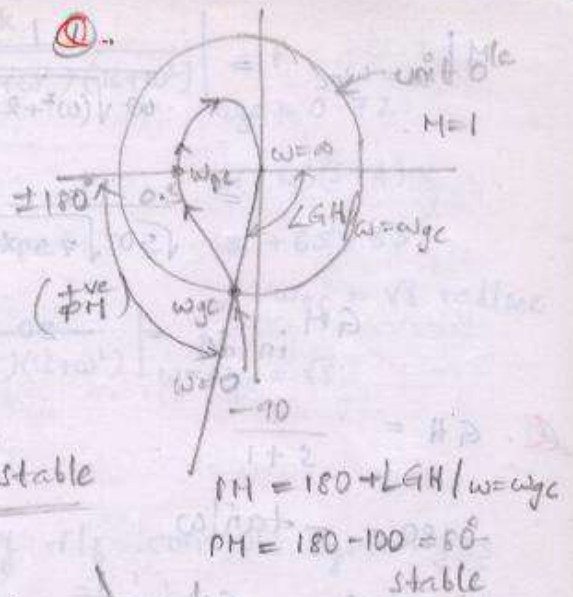 ①..
unit 0^le
M=1
ω=∞
ωpc
±180°
0.5
∠GH/ω=ωgc
(+ve PM)
ωgc
ω=0
-90
stable
PM = 180+∠GH/ω=ωgc
PM = 180-100=80°
stable